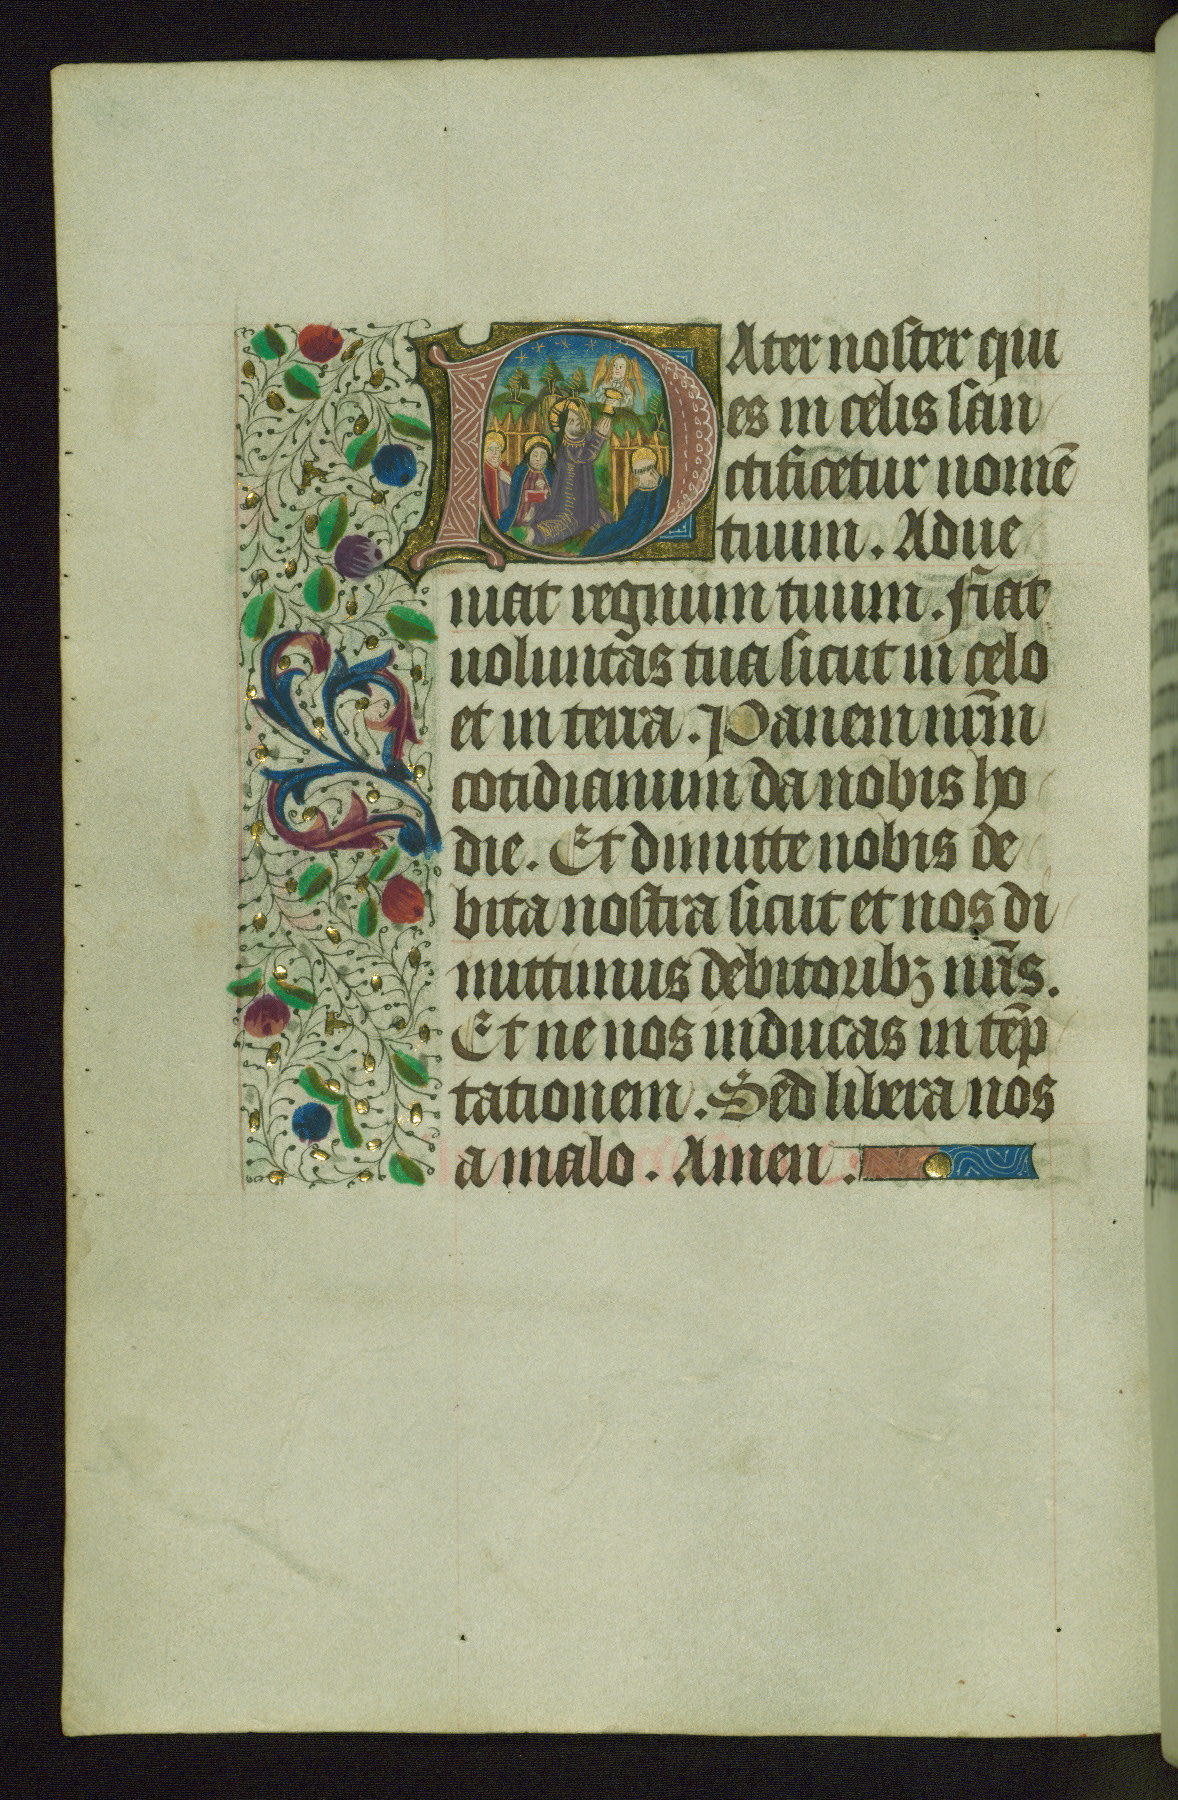 PAter noster qui
es in celis san
ctificetur nomē
tuum. Adue
niat regnum tuum. Fiat
uoluntas tua sicut in celo
et in terra. Panem nr̄m
cotidianum da nobis ho
die. Et dimitte nobis de
bita nostra sicut et nos di
mittimus debitoribꝫ nr̄is.
Et ne nos inducas in tēp
tationem. Sed libera nos
a malo. Amen.